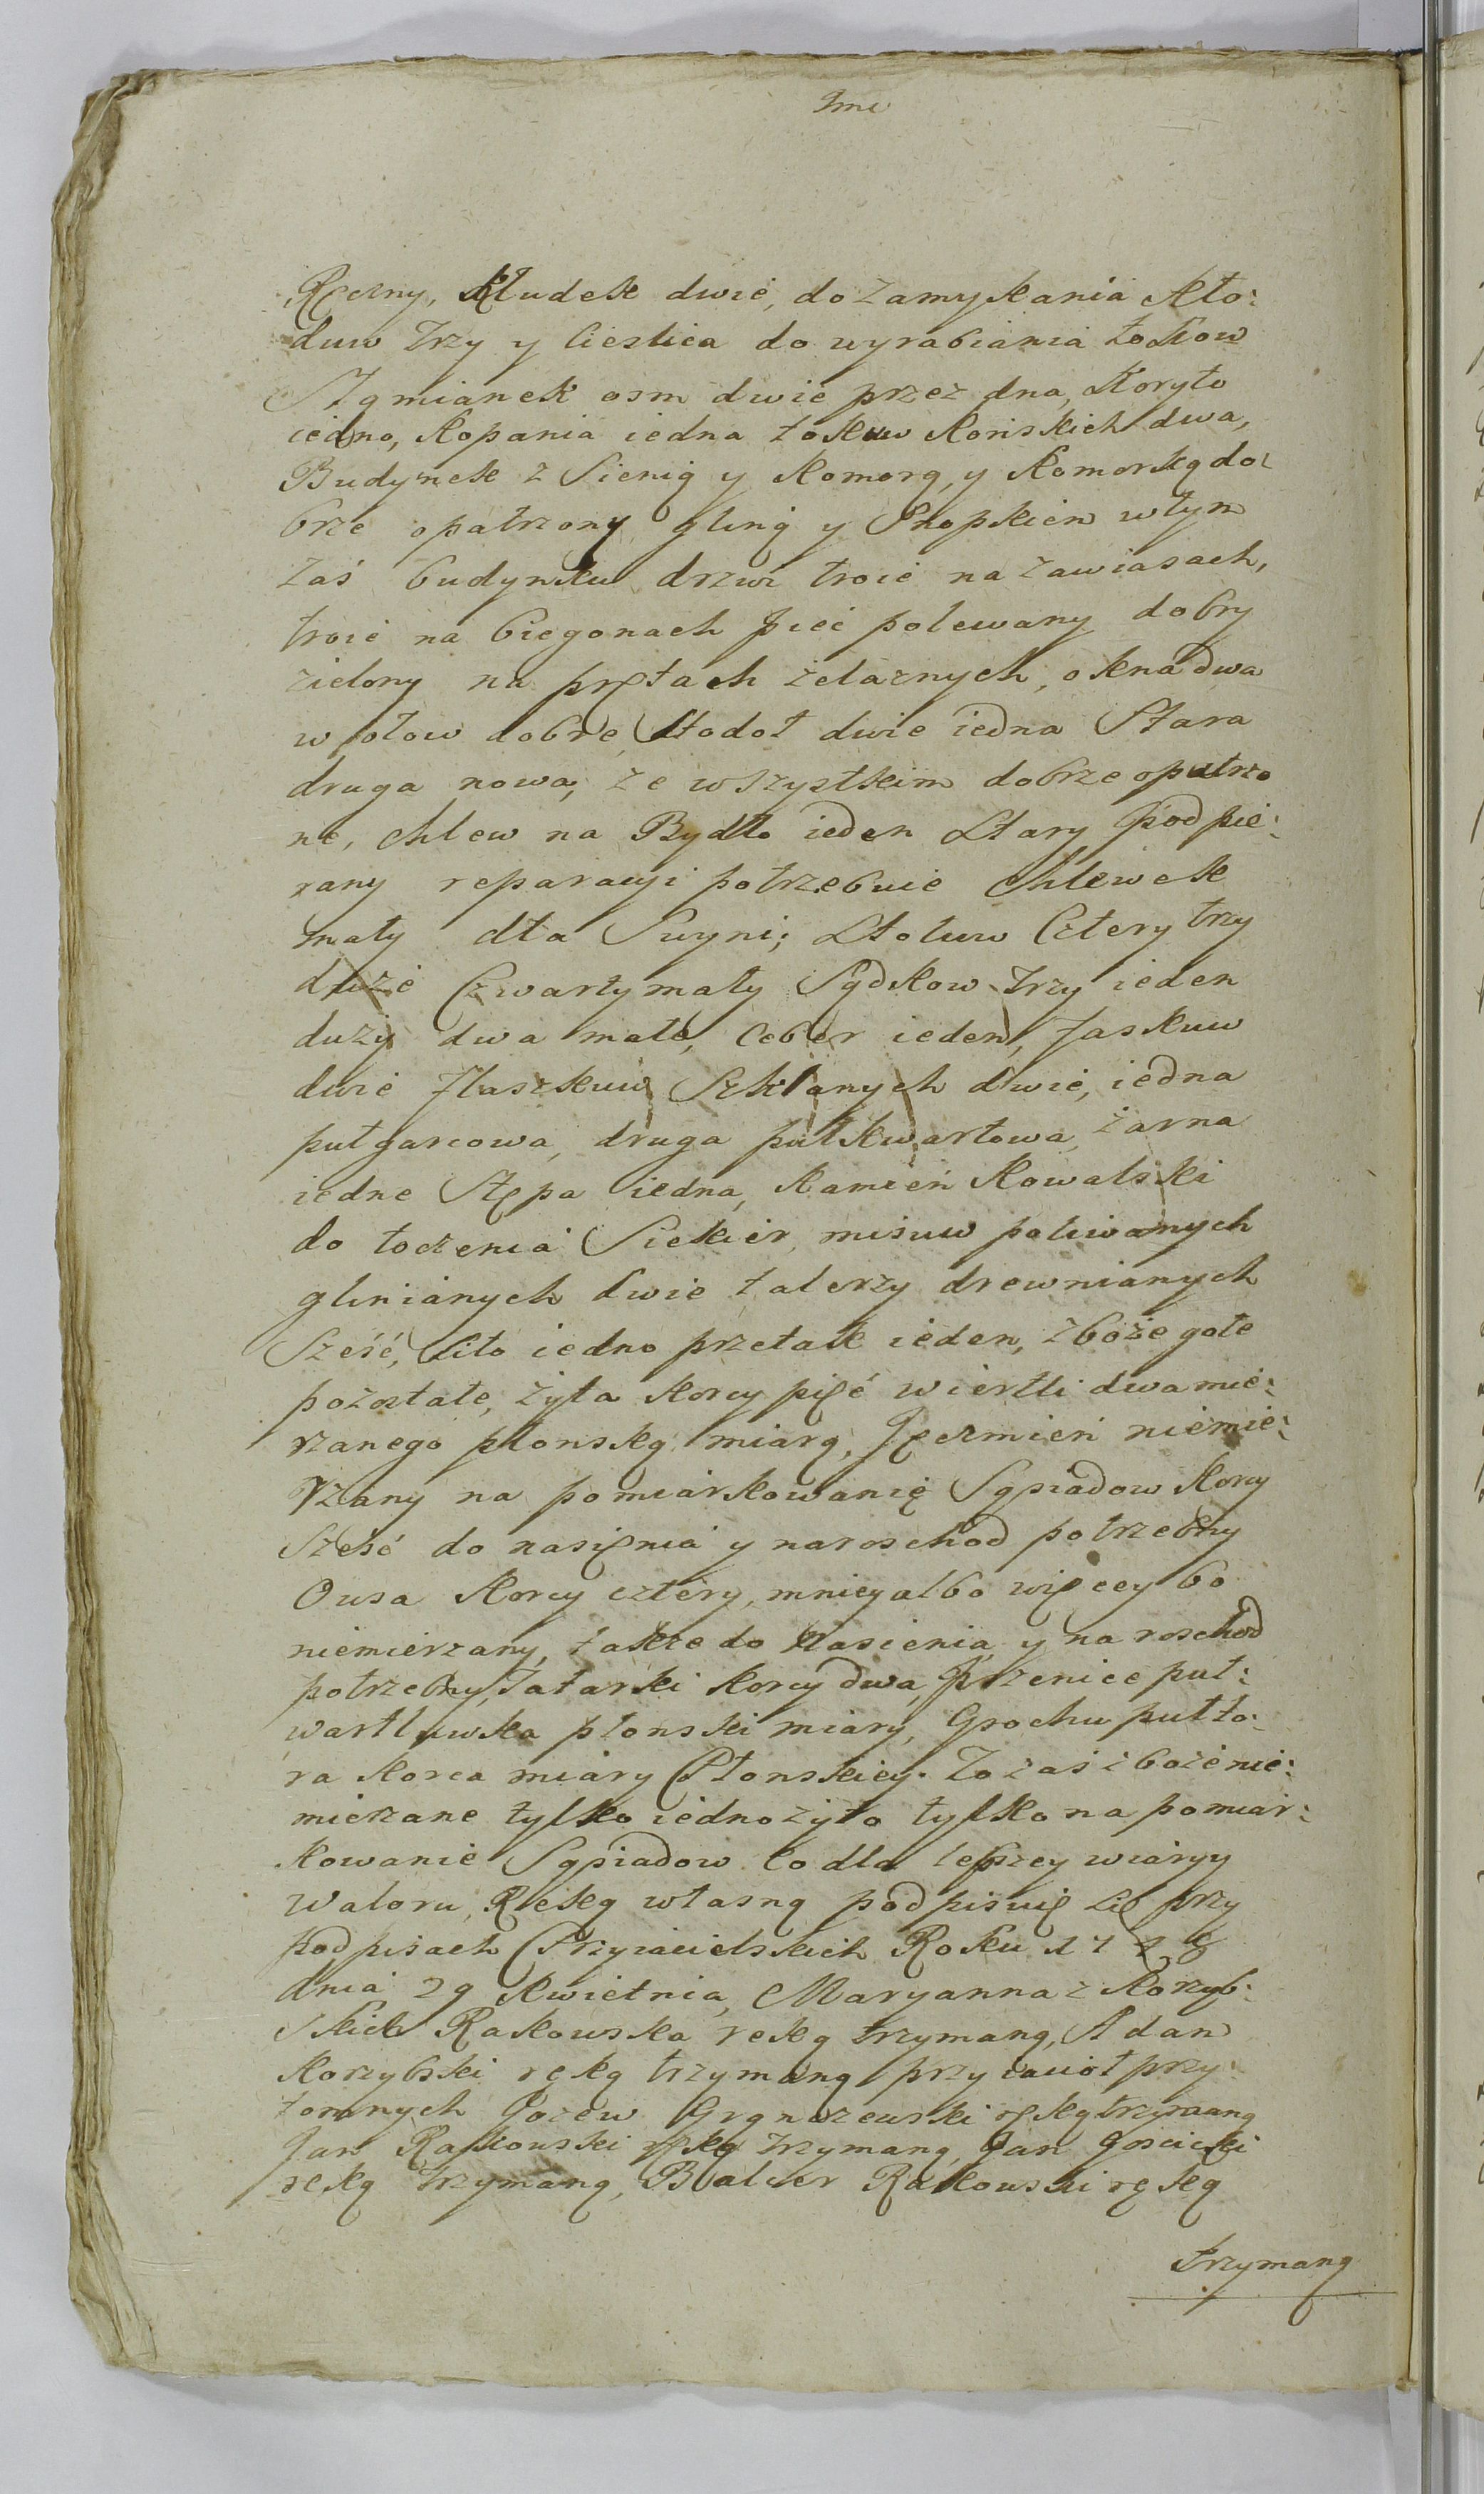 Ręczny, Kłudek dwie, do zamykania kło:
duw trzy y Cieslica do wyrabiania tokow
Stgmianek osm dwie przez dna, Koryto
iedno, Kopania iedna tokuw Końskich dwa,
Budynek z Sienią y Komorą, y Komorką do:
brze opatrzony gliną y Snopkiem w tym
zaś budynku drzwi troie na zawiasach,
troie na biegonach piec polewany dobry
zielony na prętach żelaznych, okna dwa
w ołow dobre, Stodoł dwie iedna Stara
druga nowa, ze wszystkim dobrze opatrzo
ne, chlew na Bydło ieden Stary podpie:
rany reparacyi potrzebuie Chlewek
mały dla Swyni; Stołuw Cztery trzy
duże Czwarty mały Sądkow trzy ieden
duży dwa małe, Ceber ieden, faskuw
dwie flaszkuw Szklanych dwie, iedna
pułgarcowa, druga pułkwartowa, żarna
iedne Stępa iedna, Kamień Kowalski
do toczenia Siekier, misuw poliwanych
glinianych dwie talerzy drewnianych
Sześć, Sito iedno przetak ieden, zboże gołe
pozostałe, żyta korcy pięć wiertli dwa mie:
rzanego płonską miarą, Jęczmień niemie:
rzany na pomiarkowanię Sąsiadow Korcy
Sześć do nasięnia y na roschod potrzebny
Owsa Korcy cztery, mniey albo więcey bo
niemierzany, także do Nasienia y na roschod
potrzebny, Tatarki Korcy dwa, Pszenice puł:
wartluwka płonski miary, Grochu pułto:
ra Korca miary Płonskiey. To zaś zboże nie:
mierzane tylko iedno żyto tylko na pomiar:
kowanie Sąsiadow to dla lepszey wiary y
Waloru, Ręką własną podpisuię się przy
podpisach Przyiacielskich Roku 1728
dnia 29 Kwietnia, Maryanna z Korzyb:
skich Rakowska ręką trzymaną, Adam
Korzybski ręką trzymaną przyiacioł przy
tomnych Jozew Grąnczewski ręką trzymaną
Jan Rakowski ręką trzymaną, Jan Gościcki
ręką trzymaną, Balcer Rakowski ręką
trzymaną